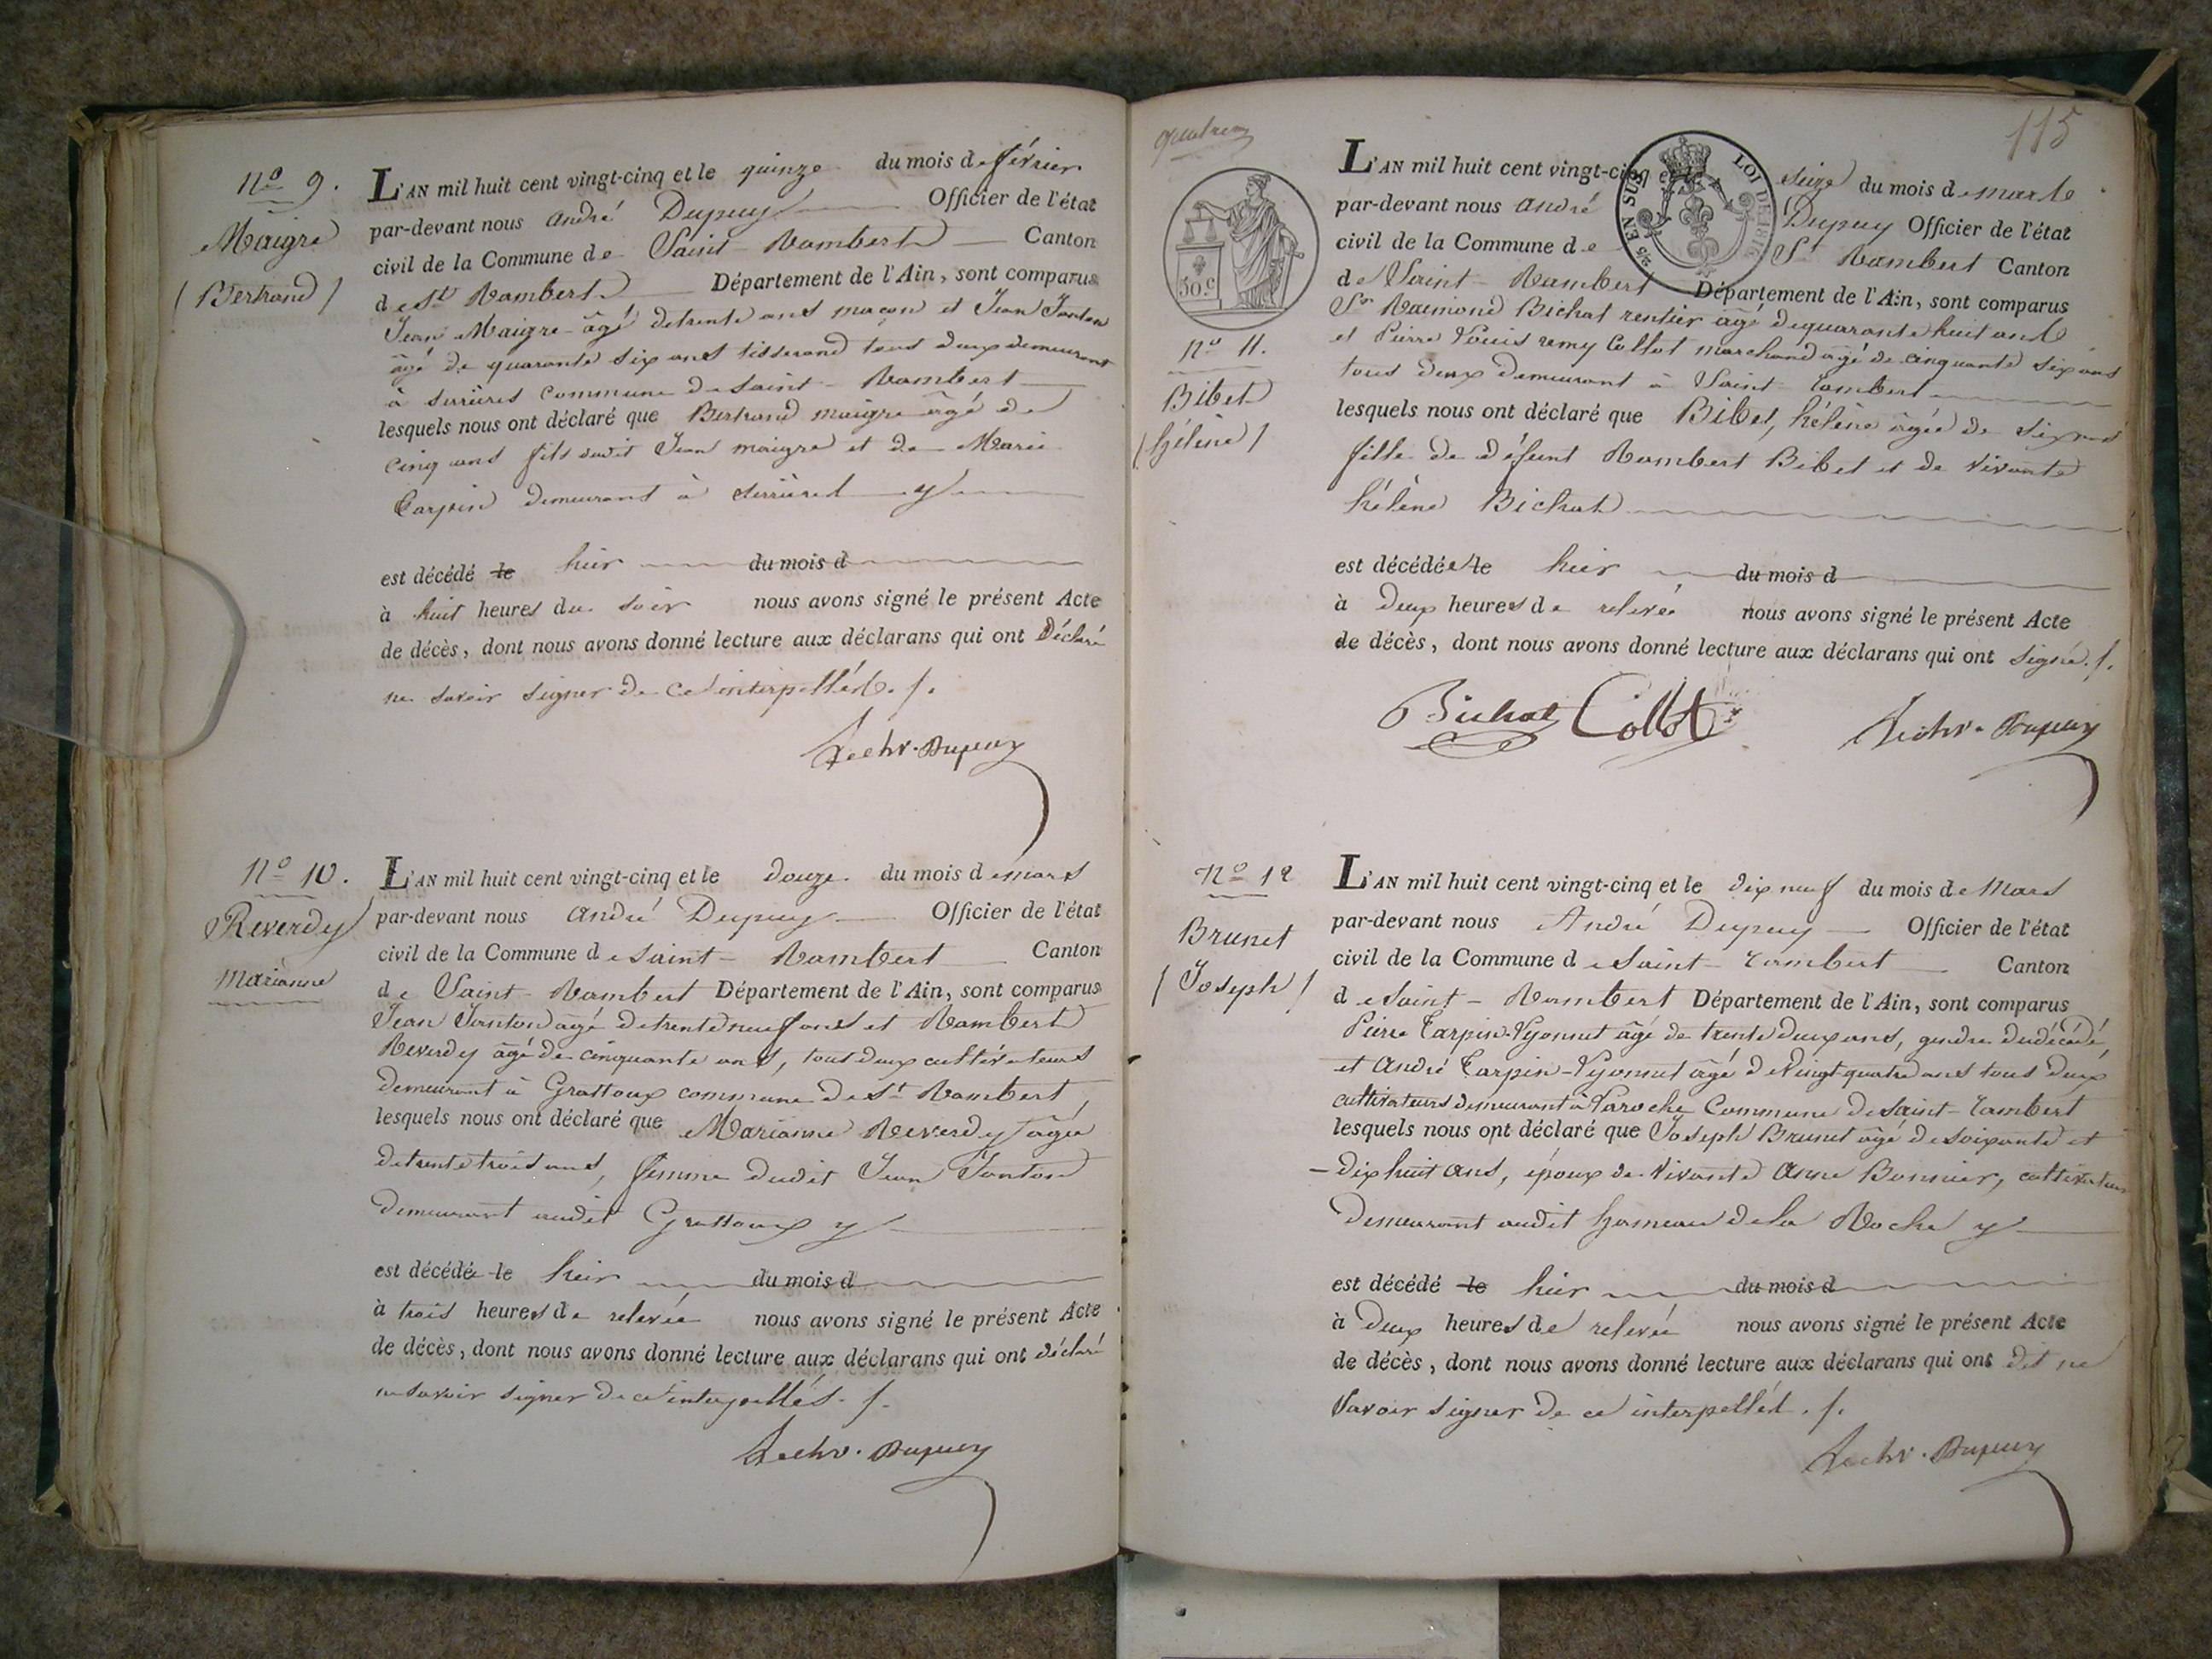 No 9.
Maigre
(Bertrand)
L'AN mil huit cent vingt-cinq et le quinze du mois de février
par-devant nous andré Dupuy Officier de l'état
civil de la Commune de Saint-Rambert Canton
de St Rambert Département de l'Ain, sont comparus
Jean Maigre âgé de trente ans maçon et Jean Janton
âgé de quarante six ans tisserand tous deux demeurant
à serrières commune de Saint-Rambert
lesquels nous ont déclaré que Bertrand maigre âgé de
cinq ans fils dudit Jean maigre et de Marie
Carpin demeurant à serrières
est décédé le hier du mois d
à huit heures du soir nous avons signé le présent Acte
de décès, dont nous avons donné lecture aux déclarans qui ont Déclaré
ne savoir signer de ce interpellés./.
Dupuy
No 10.
Reverdy
Marianne
L'AN mil huit cent vingt-cinq et le douze du mois de mars
par-devant nous andré Dupuy Officier de l'état
civil de la Commune de saint-Rambert Canton
de Saint-Rambert Département de l'Ain, sont comparus
Jean Janton âgé de trente neuf ans et Rambert
Reverdy âgé de cinquante ans, tous deux cultivateurs
demeurant à Grattoux commune de St Rambert,
lesquels nous ont déclaré que Marianne Reverdy âgée
de trente trois ans, femme dudit Jean Janton
demeurant audit Grattoux
est décédée le hier du mois d
à trois heures de relevée nous avons signé le présent Acte
de décès, dont nous avons donné lecture aux déclarans qui ont déclaré
ne savoir signer de ce interpellés./.
Dupuy
115
50.c
25 EN SUS
LOI DE 1816
No 11.
Bibet
(hélène)
L'AN mil huit cent vingt-cinq et le seize du mois de mars
par-devant nous andré Dupuy Officier de l'état
civil de la Commune de St Rambert Canton
de Saint-Rambert Département de l'Ain, sont comparus
Sr Raimond Bichat rentier âgé de quarante huit ans
et Pierre Louis remy Collot marchand âgé de cinquante six ans
tous deux demeurant à Saint-rambert
lesquels nous ont déclaré que Bibet, hélène âgée de six ans
fille de défunt Rambert Bibet et de vivante
hélène Bichat
est décédée le hier du mois d
à deux heures de relevée nous avons signé le présent Acte
de décès, dont nous avons donné lecture aux déclarans qui ont signé./.
Bichat Collot Dupuy
No 12
Brunet
(Joseph)
L'AN mil huit cent vingt-cinq et le dix neuf du mois de Mars
par-devant nous André Dupuy Officier de l'état
civil de la Commune de Saint-rambert Canton
de Saint-Rambert Département de l'Ain, sont comparus
Pierre Carpin-Vyonnet âgé de trente deux ans, gendre du décédé,
et André Carpin-Vyonnet âgé de vingt quatre ans tous deux
cultivateurs demeurant à Laroche Commune de Saint-rambert
lesquels nous ont déclaré que Joseph Brunet âgé de soixante et
dix huit ans, époux de vivante Anne Bonnier, cultivateur
demeurant audit hameau de la Roche
est décédé le hier du mois d
à deux heures de relevée nous avons signé le présent Acte
de décès, dont nous avons donné lecture aux déclarans qui ont dit ne
savoir signer de ce interpellés./.
Dupuy